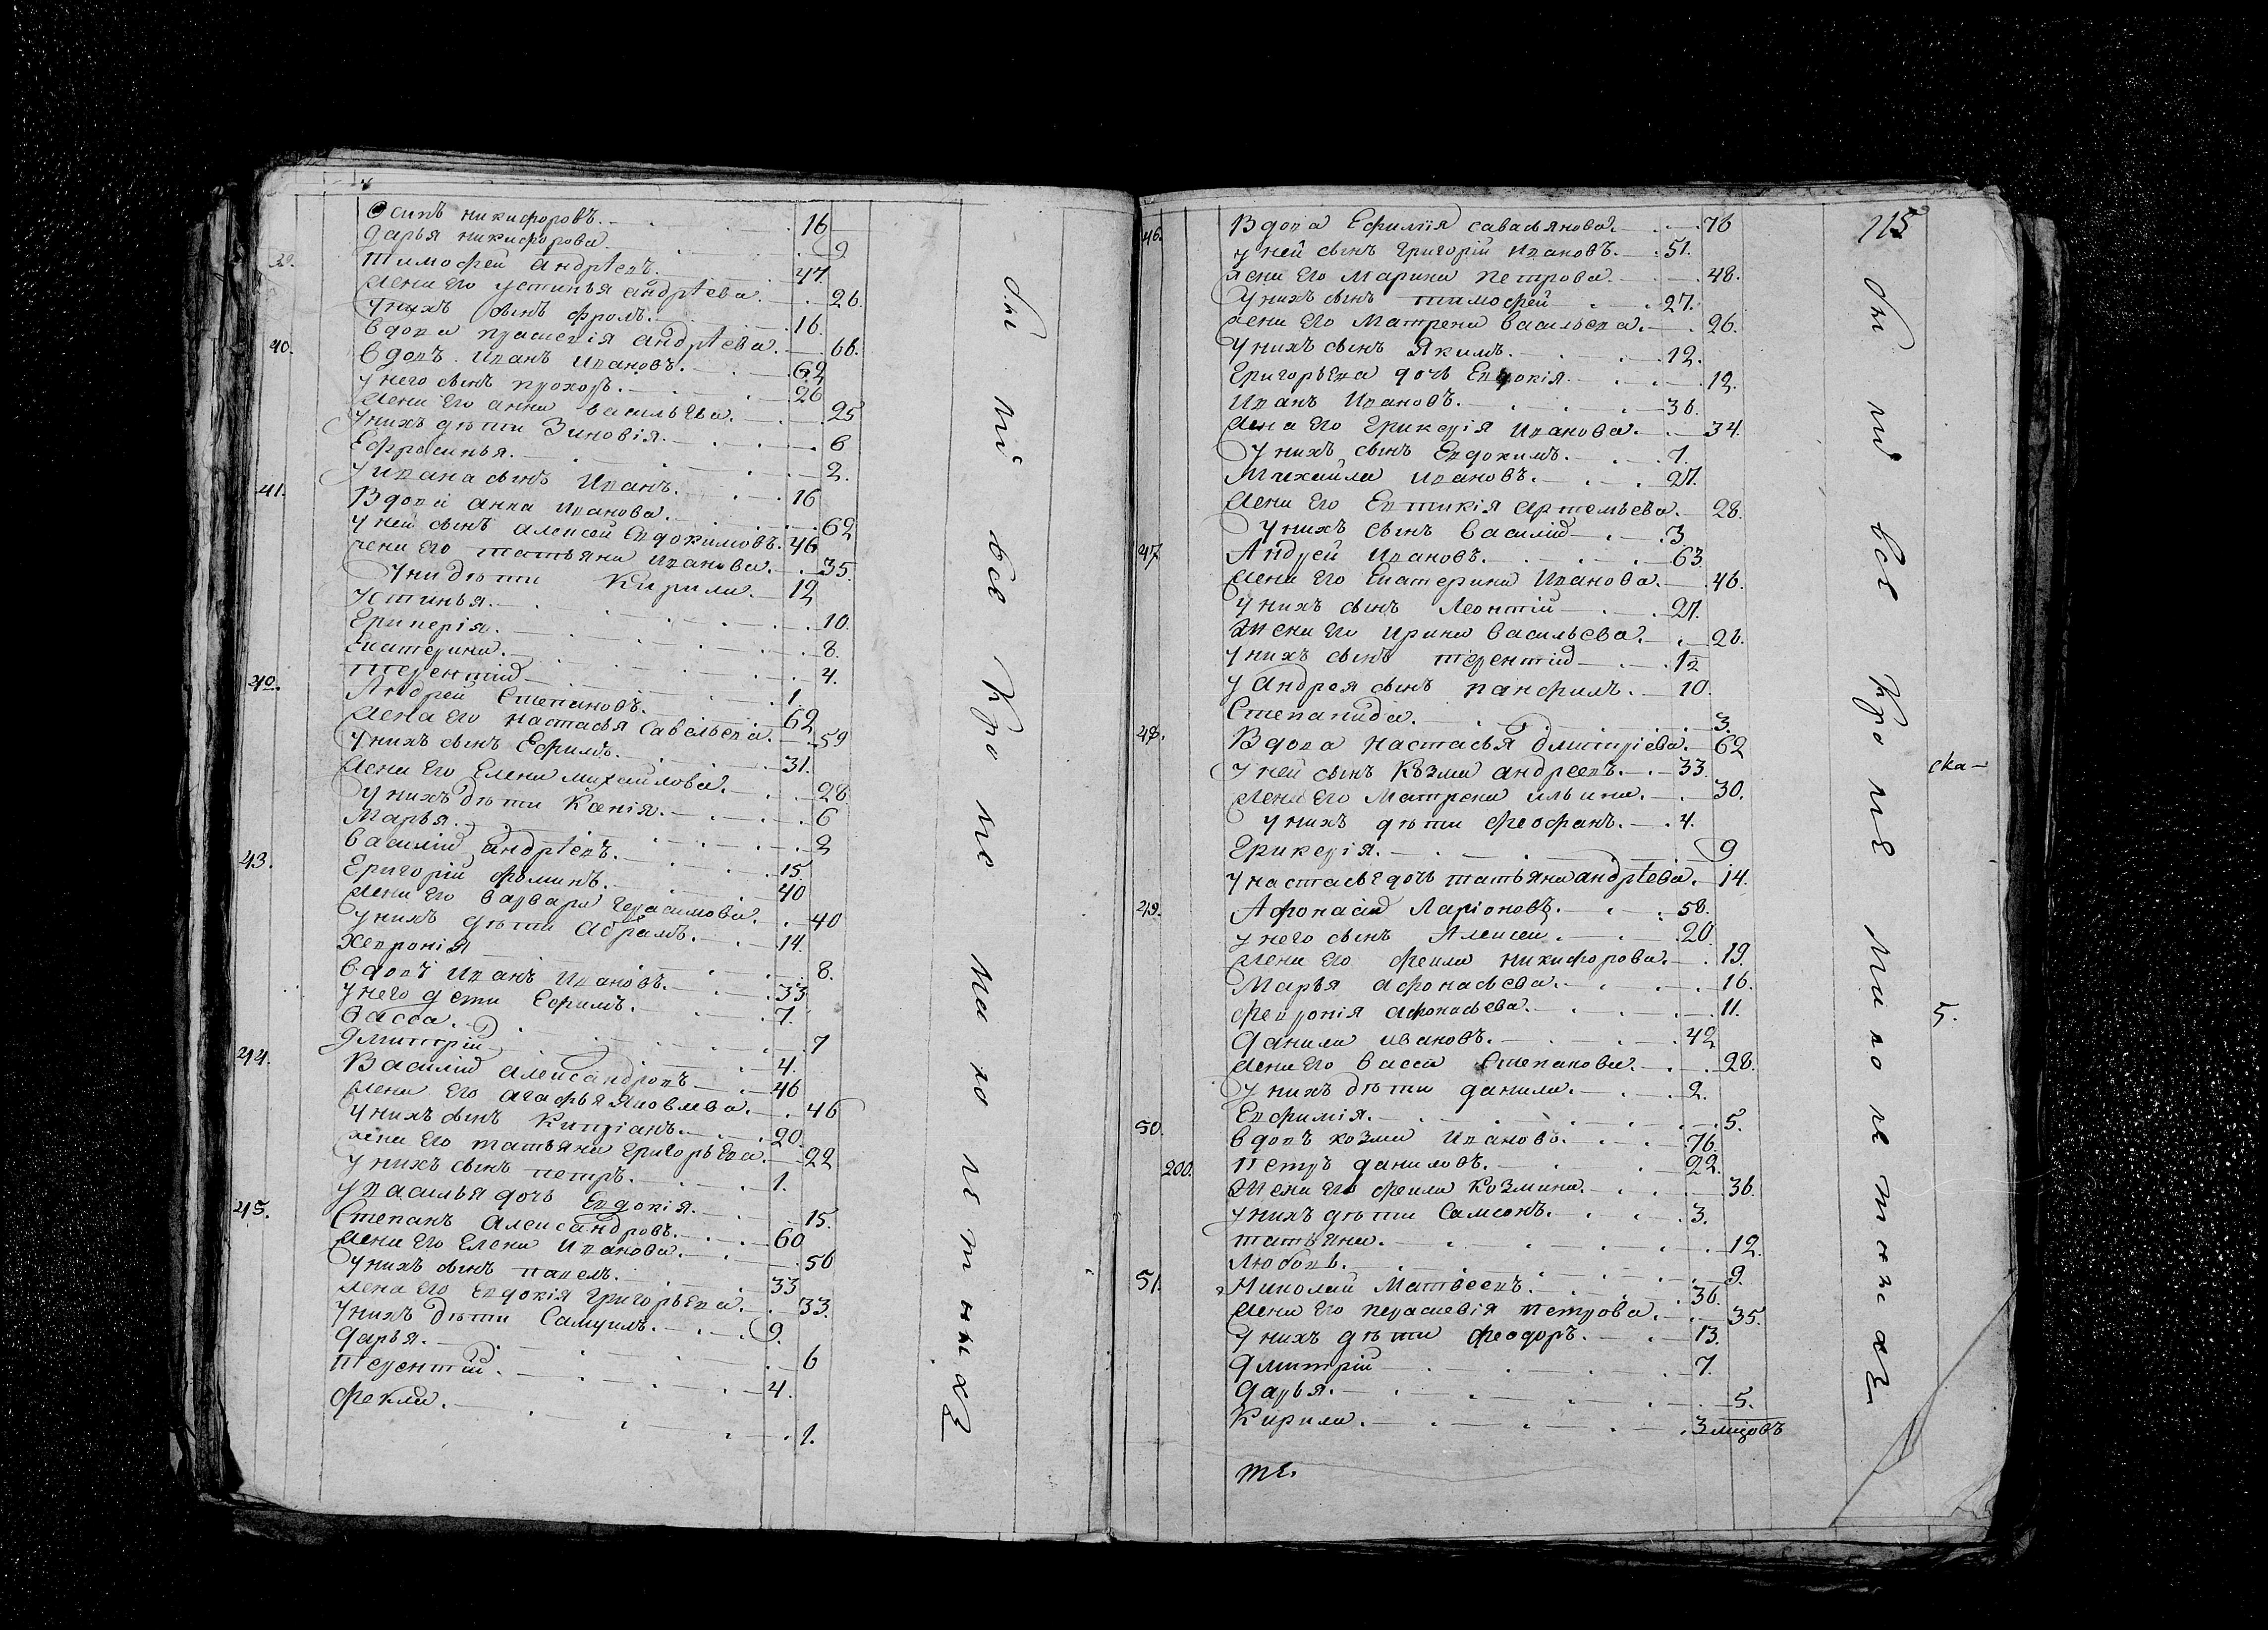 Осипъ никифоровъ. 16
дарья никифорова 9
39. Тимофей андрѣевъ. 47
жена его устинья андрѣева. 26.
у нихъ сынъ фролъ. 16.
вдова прасковія андрѣева. 66.
40. вдовъ иванъ ивановъ. 62
у него сынъ прохоръ. 26
жена его анна васильева. 25
у нихъ дѣти Зиновія. 6
Ефросинья. 2.
у ивана сынъ Иванъ. 16
41. Вдова анна иванова. 62
у ней сынъ алексей Евдокимовъ. 46
жена его татьяна иванова. 35.
у ни дѣти Кирила. 12
устинья. 10.
8.
Екатерина. 4.
терентій 1
42. Андрей Степановъ. 62
жена его настасья Савельева. 59
у нихъ сынъ Ефимъ. 31.
жена его Елена михайлова. 28.
у нихъ дѣти Ксенія. 6
Марья. 2
василій андрѣевъ. 15.
43. Григорій фоминъ. 40
жена его варвара герасимова. 40
у нихъ дѣти абрамъ. 14.
Хевронія 8.
вдовъ иванъ ивановъ. 33
у него дети Ефимъ. 7.
васса. 7
дмитрій 4.
44. Василій александровъ 46
жена его агафья Яковлева. 46
у нихъ сынъ Кипріанъ. 20.
жена его татьяна григорьева. 22
у нихъ сынъ петръ. 1.
у василья дочь Евдокія. 15.
45. Степанъ Александровъ. 60
жена его Елена иванова. 50
у нихъ сынъ павелъ. 33
жена его евдокія григорьева. 33.
у нихъ дѣти Самуилъ. 9.
дарья. 6
терентій. 4.
фекла. 1.
были всѣ кроме малолетныхъ
115
46. Вдова Ефимія савасьянова. 76
у ней сынъ григорій ивановъ. 51.
жена его марина петрова. 48.
у нихъ сынъ тимофей 27.
жена его Матрена васильева. 26.
у нихъ сынъ Якимъ. 12.
григорьева дочь Евдокія. 12.
Иванъ Ивановъ. 36.
жена его иванова. 34.
у нихъ сынъ Евдокимъ. 7.
Михайла ивановъ. 27.
жена его Евтикія артемьева. 28.
у нихъ сынъ василій 3.
47. Андрей ивановъ. 63.
жена его Екатерина Иванова. 46.
у нихъ сынъ Леонтій 27.
Жена его ирина васильева. 26.
у нихъ сынъ терентій 12
у андрея сынъ панфилъ. 10.
Степанида. 3.
48. Вдова настасья дмитріева. 62
у ней сынъ Козма андреевъ. 33.
жена его Матрена ильина. 30.
у нихъ дѣти феофанъ. 4.
9
у настасьѣ дочь татьяна андрѣева. 14.
49. Афонасій Ларіоновъ. 58.
у него сынъ Алексей. 20.
жена его фекла никифорова. 19.
Марья афонасьева. 16.
февронія афонасьева. 11.
данила ивановъ. 42
жена его васса Степанова. 28.
у нихъ дѣти данила. 2.
Евфимія. 5.
50. вдовъ козма Ивановъ. 76.
200. петръ даниловъ. 22.
Жена его фекла Козмина. 36.
у нихъ дѣти Самсонъ. 3.
татьяна. 12.
Любовь. 9.
51. Николай Матвеевъ. 36.
жена его параскевія петрова. 35.
у нихъ дѣти феодоръ. 13.
дмитрій 7.
дарья. 5.
Кирила. 3
те.
были всѣ кроме малолетныхъ
ска-
5.